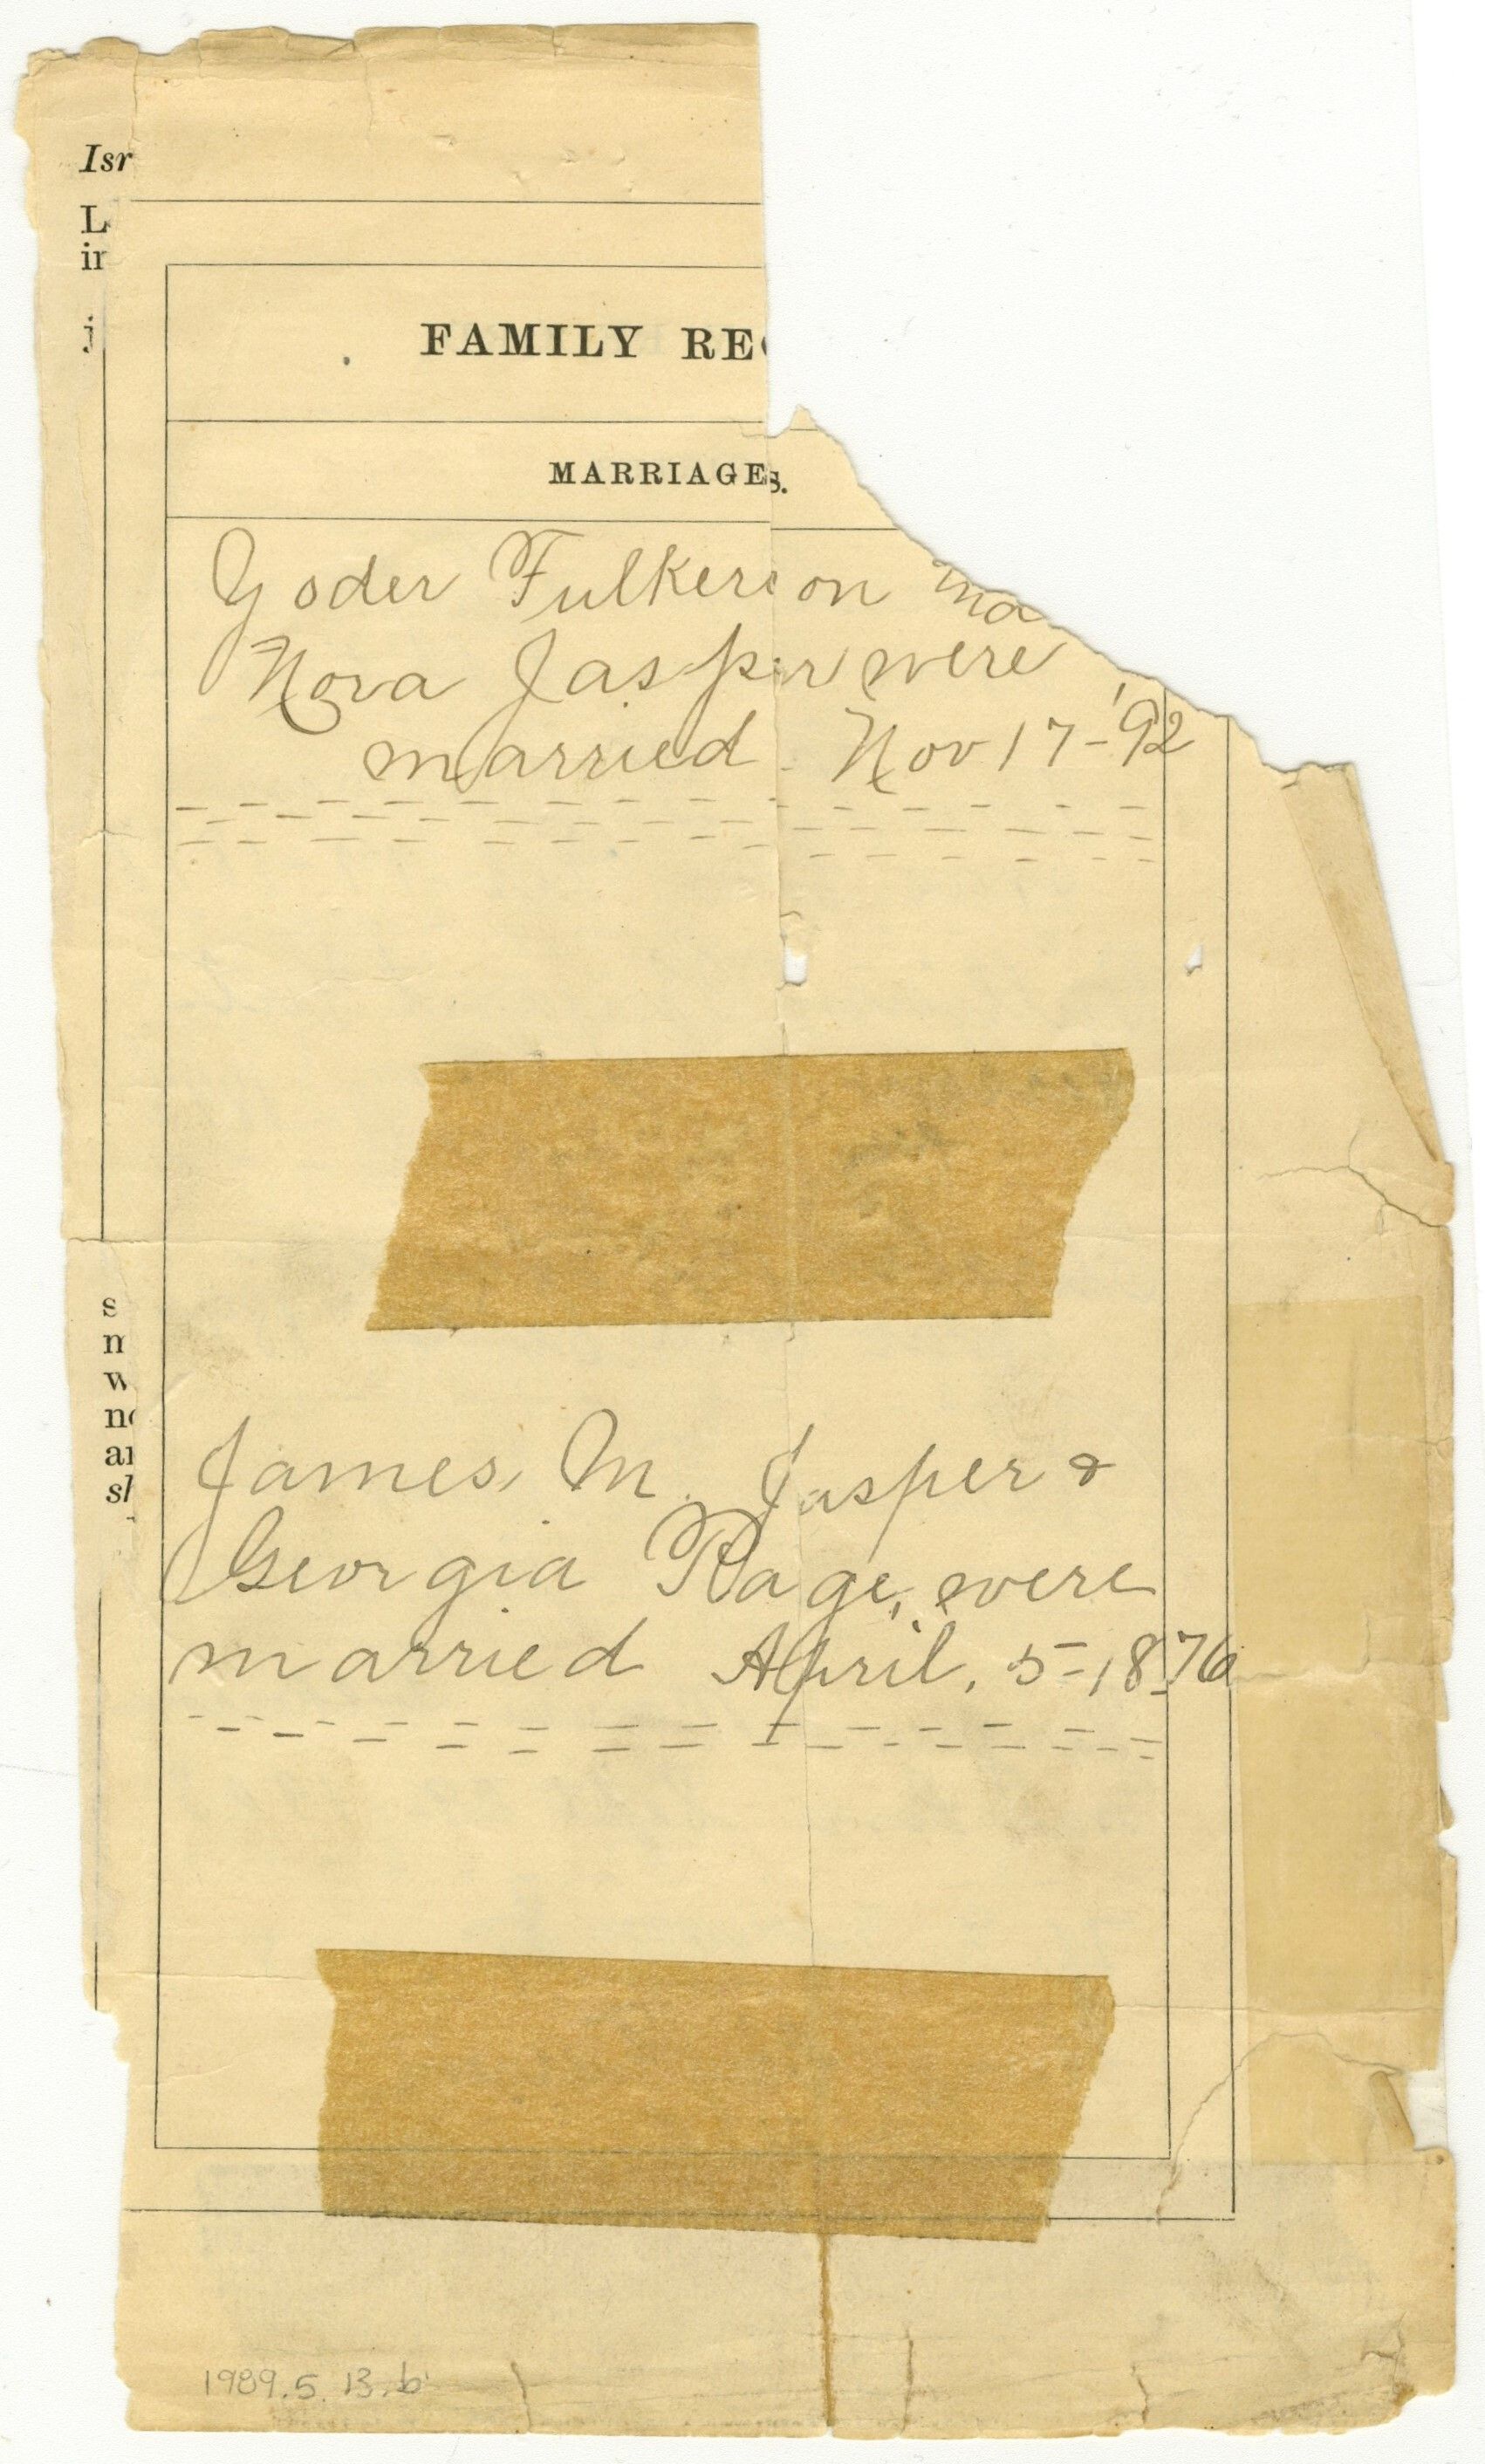 Isr
L
in
j
FAMILY REC
MARRIAGES.
Yoder Fulkerson
Nora Jasper were
married Nov 17-'92
s
m
w
no
an
sh
James M. Jasper &
Georgia Page, were
married April. 5-1876
1989.5.13.b